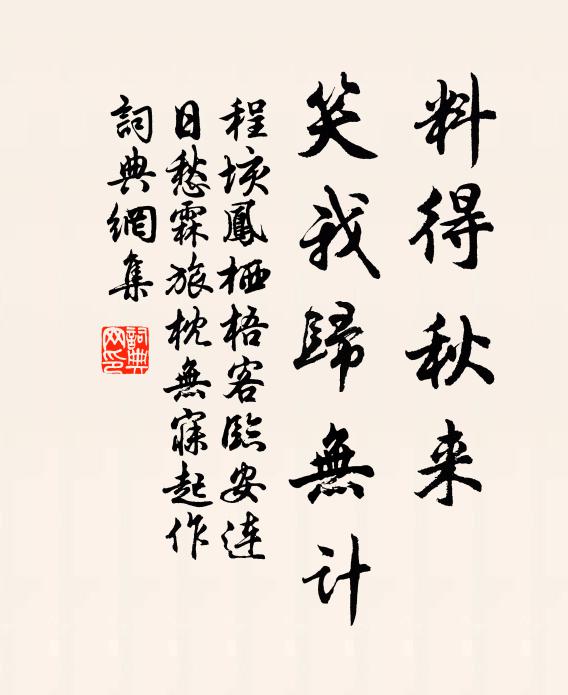 料得秋来
笑我歸無計
程垓鳳栖梧客臨安連
日愁霖旅枕無寐起作
詞典網集
詞典
网印